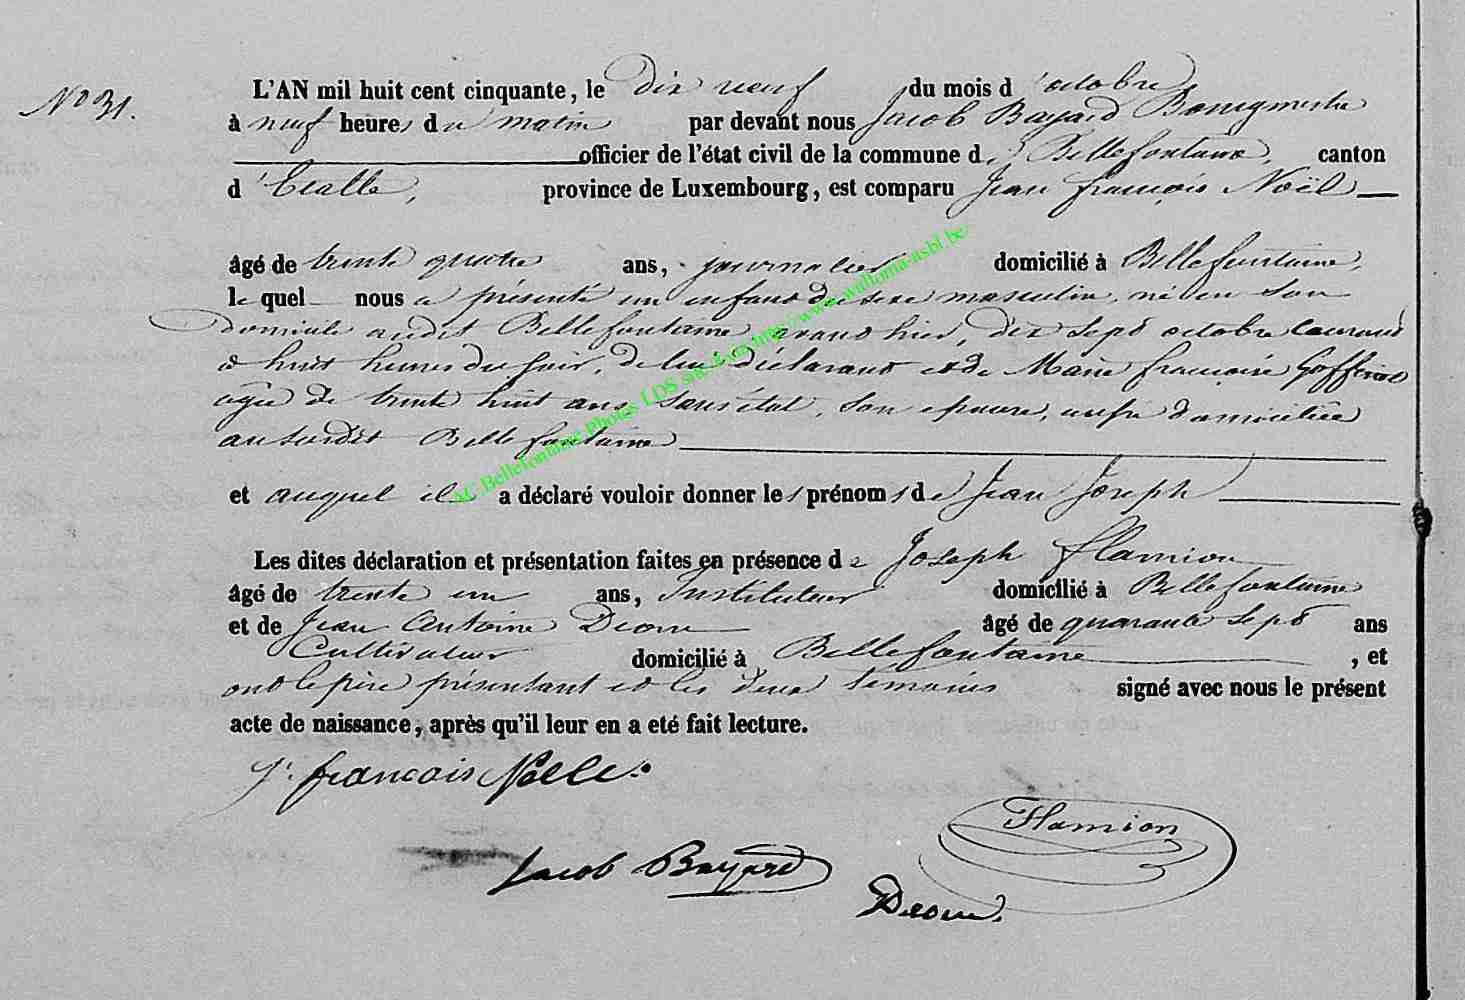 No 31.
L'AN mil huit cent cinquante, le Dix neuf du mois d'octobre
à neuf heures du matin par devant nous Jacob Bayard Bourgmestre
officier de l'état civil de la commune de Bellefontaine, canton
d'Etalle, province de Luxembourg, est comparu Jean françois Noël
âgé de trente quatre ans, journalier domicilié à Bellefontaine,
lequel nous a présenté un enfant de sexe masculin, né en son
domicile audit Bellefontaine avant hier, dix sept octobre courant
à huit heures du soir, de lui déclarant et de Marie françoise Goffinet
agée de trente huit ans, sans état, son epouse, aussi domiciliée
au susdit Bellefontaine
et auquel il a déclaré vouloir donner les prénoms de Jean Joseph
Les dites déclaration et présentation faites en présence de Joseph flamion
âgé de trente un ans, Instituteur domicilié à Bellefontaine
et de Jean Antoine Deom âgé de quarante sept ans
Cultivateur domicilié à Bellefontaine, et
ont le père présentant et les deux témoins signé avec nous le présent
acte de naissance, après qu'il leur en a eté fait lecture.
J. francois Noelle
Flamion
Jacob Bayard
Deom
AC Bellefontaine Photos LDS sur Avis http://www.walloma-asbl.be/